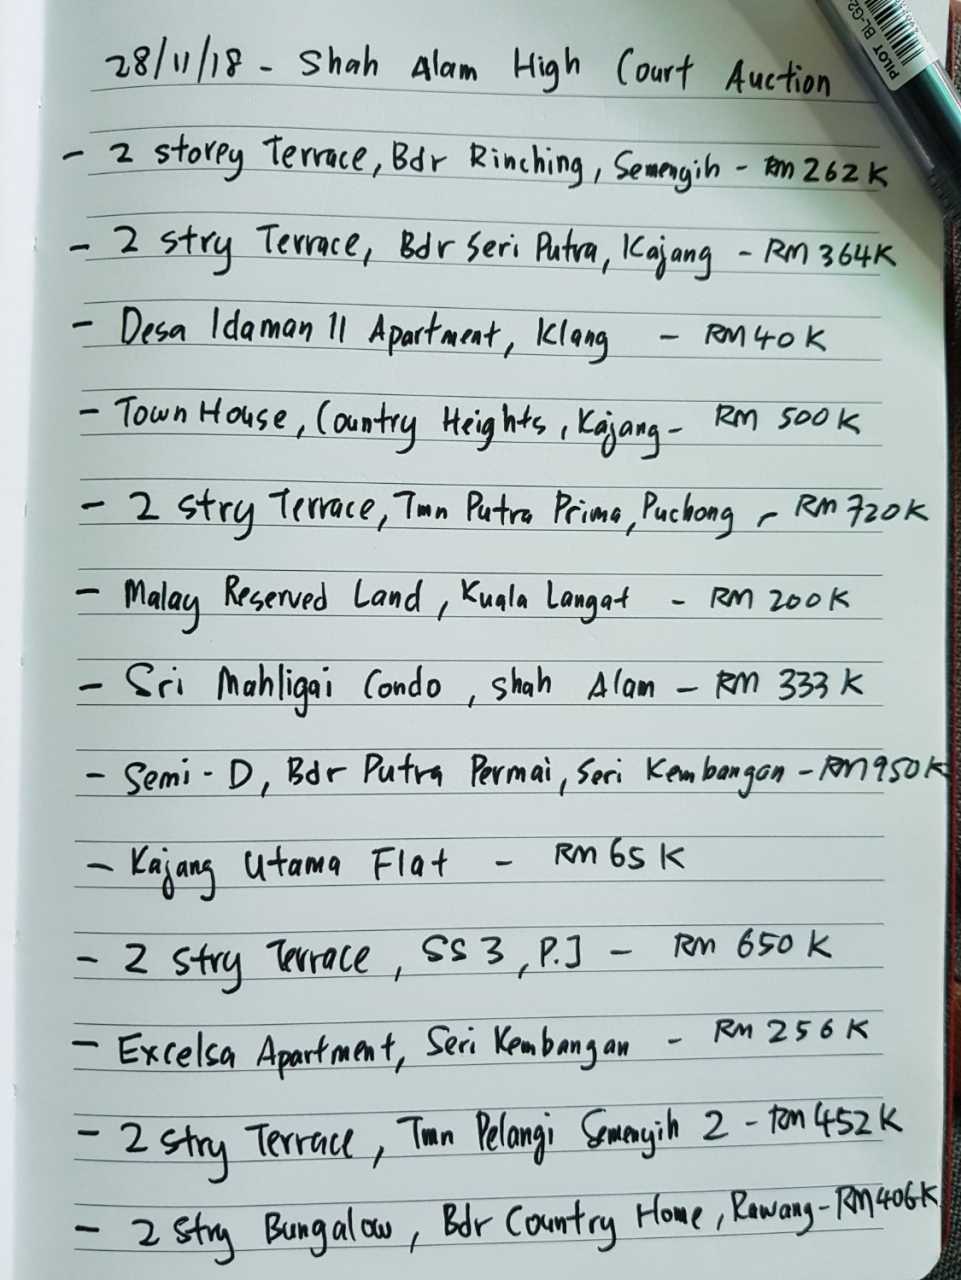 28/11/18 - Shah Alam High Court Auction
- 2 storey Terrace, Bdr Rinching, Semengih - RM 262K
- 2 stry Terrace, Bdr Seri Putra, Kajang - RM 364K
- Desa Idaman 11 Apartment, Klang - RM 40K
- Town House, Country Heights, Kajang - RM 500K
- 2 stry Terrace, Tmn Putra Prima, Puchong - RM 720K
- Malay Reserved Land, Kuala Langat - RM 200K
- Sri Mahligai Condo, Shah Alam - RM 333K
- Semi-D, Bdr Putra Permai, Seri Kembangan - RM 950K
- Kajang Utama Flat - RM 65K
- 2 stry Terrace, SS3, P.J - RM 650K
- Excelsa Apartment, Seri Kembangan - RM 256K
- 2 stry Terrace, Tmn Pelangi Semenyih 2 - RM 452K
- 2 stry Bungalow, Bdr Country Home, Rawang - RM 406K
PILOT BL-G2